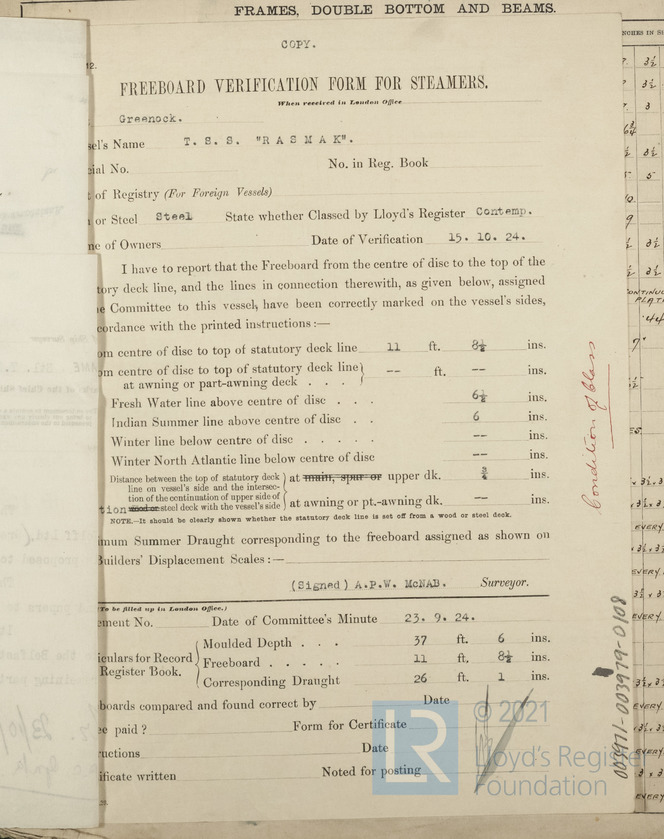 FRAMES, DOUBLE BOTTOM AND BEAMS.
COPY.
12.
FREEBOARD VERIFICATION FORM FOR STEAMERS.
When received in London Office
Greenock.
sel's Name T. S. S. "R A S M A K".
ial No. No. in Reg. Book
t of Registry (For Foreign Vessels)
or Steel Steel State whether Classed by Lloyd's Register Contemp.
ne of Owners Date of Verification 15. 10. 24.
I have to report that the Freeboard from the centre of disc to the top of the
tory deck line, and the lines in connection therewith, as given below, assigned
e Committee to this vessel, have been correctly marked on the vessel's sides,
cordance with the printed instructions:—
om centre of disc to top of statutory deck line 11 ft. 8½ ins.
om centre of disc to top of statutory deck line
at awning or part-awning deck . . . -- ft. -- ins.
Fresh Water line above centre of disc . . . 6½ ins.
Indian Summer line above centre of disc . . 6 ins.
Winter line below centre of disc . . . . . -- ins.
Winter North Atlantic line below centre of disc -- ins.
Distance between the top of statutory deck
line on vessel's side and the intersec- at main, spar or upper dk. ¾ ins.
tion of the continuation of upper side of
tion wood or steel deck with the vessel's side at awning or pt.-awning dk. -- ins.
NOTE.—It should be clearly shown whether the statutory deck line is set off from a wood or steel deck.
imum Summer Draught corresponding to the freeboard assigned as shown on
Builders' Displacement Scales:—
(Signed) A.P.W. McNAB. Surveyor.
(To be filled up in London Office.)
ement No. Date of Committee's Minute 23. 9. 24.
Moulded Depth . . . 37 ft. 6 ins.
iculars for Record Freeboard . . . . . 11 ft. 8½ ins.
Register Book.
Corresponding Draught 26 ft. 1 ins.
boards compared and found correct by Date
ee paid? Form for Certificate
ructions Date
ificate written Noted for posting
Condition of Class
003971-003979-0108
LR
© 2021
Lloyd's Register
Foundation